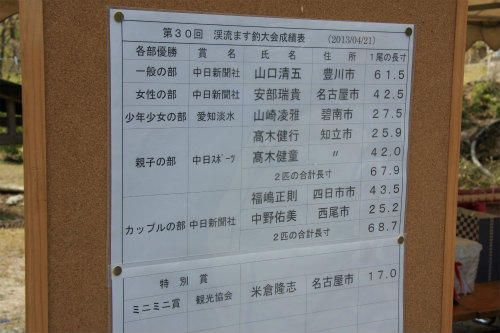 第30回 渓流ます釣大会成績表 (2013/04/21)
各部優勝 賞名 氏名 住所 1尾の長寸
一般の部 中日新聞社 山口清五 豊川市 61.5
女性の部 中日新聞社 安部瑞貴 名古屋市 42.5
少年少女の部 愛知淡水 山崎凌雅 碧南市 27.5
親子の部 中日スポーツ 髙木健行 知立市 25.9
髙木健童 〃 42.0
2匹の合計長寸 67.9
カップルの部 中日新聞社 福嶋正則 四日市市 43.5
中野佑美 西尾市 25.2
2匹の合計長寸 68.7
特別賞
ミニミニ賞 観光協会 米倉隆志 名古屋市 17.0